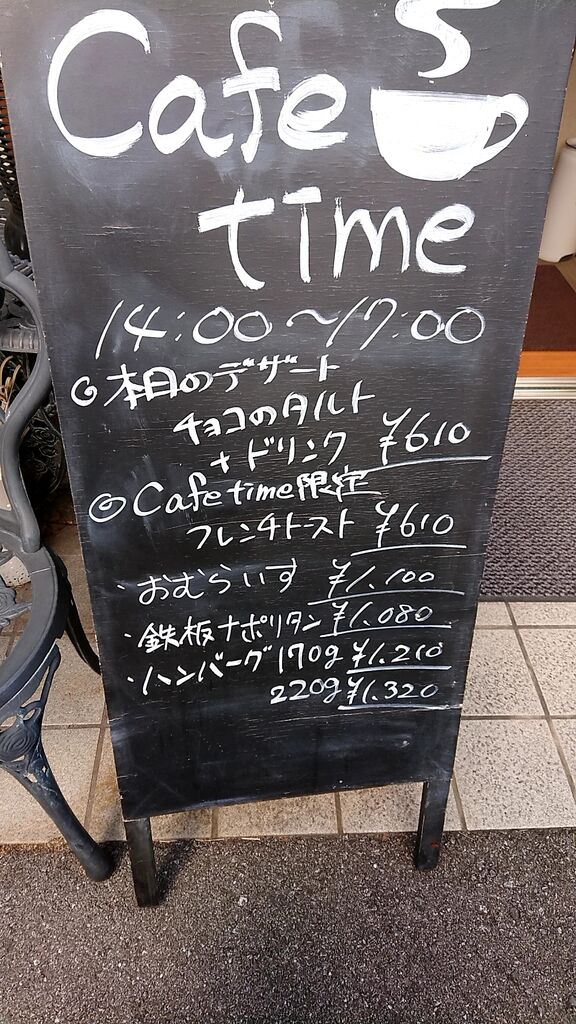 Cafe
time
14:00〜17:00
◎本日のデザート
チョコのタルト
+ドリンク ¥610
◎Cafe time限定
フレンチトースト ¥610
・おむらいす ¥1.100
・鉄板ナポリタン ¥1.080
・ハンバーグ 170g ¥1.210
220g ¥1.320